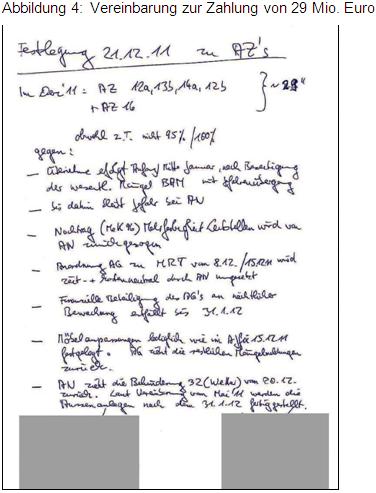 Abbildung 4: Vereinbarung zur Zahlung von 29 Mio. Euro
Festlegung 21.12.11 zu AZ's
Im Dez'11: AZ 12a, 13b, 14a, 12b
+ AZ 16
obwohl z.T. nicht 95% / 100%
gegen:
— Abnahme erfolgt Anfang/Mitte Januar, nach Beseitigung
der wesentl. Mängel BAM mit Gefahrenübergang
— bis dahin bleibt Gefahr bei AN
— Nachtrag (MeK 96) wird von
AN zurückgezogen
— Anordnung AG zu MRT vom 8.12./15.12.11 wird
zeit- + kostenneutral durch AN umgesetzt
— Finanzielle Beteiligung des AG's an nächtlicher
Bewachung entfällt bis 31.1.12
— Möbelanpassungen lediglich wie in 15.12.11
festgelegt. AG zieht die restlichen
zurück.
— AN zieht die Behinderung 32 (Wetter) vom 20.12.
zurück. Laut Vereinbarung vom Mai'11 werden die
Aussenanlagen nach dem 31.1.12 fertiggestellt.